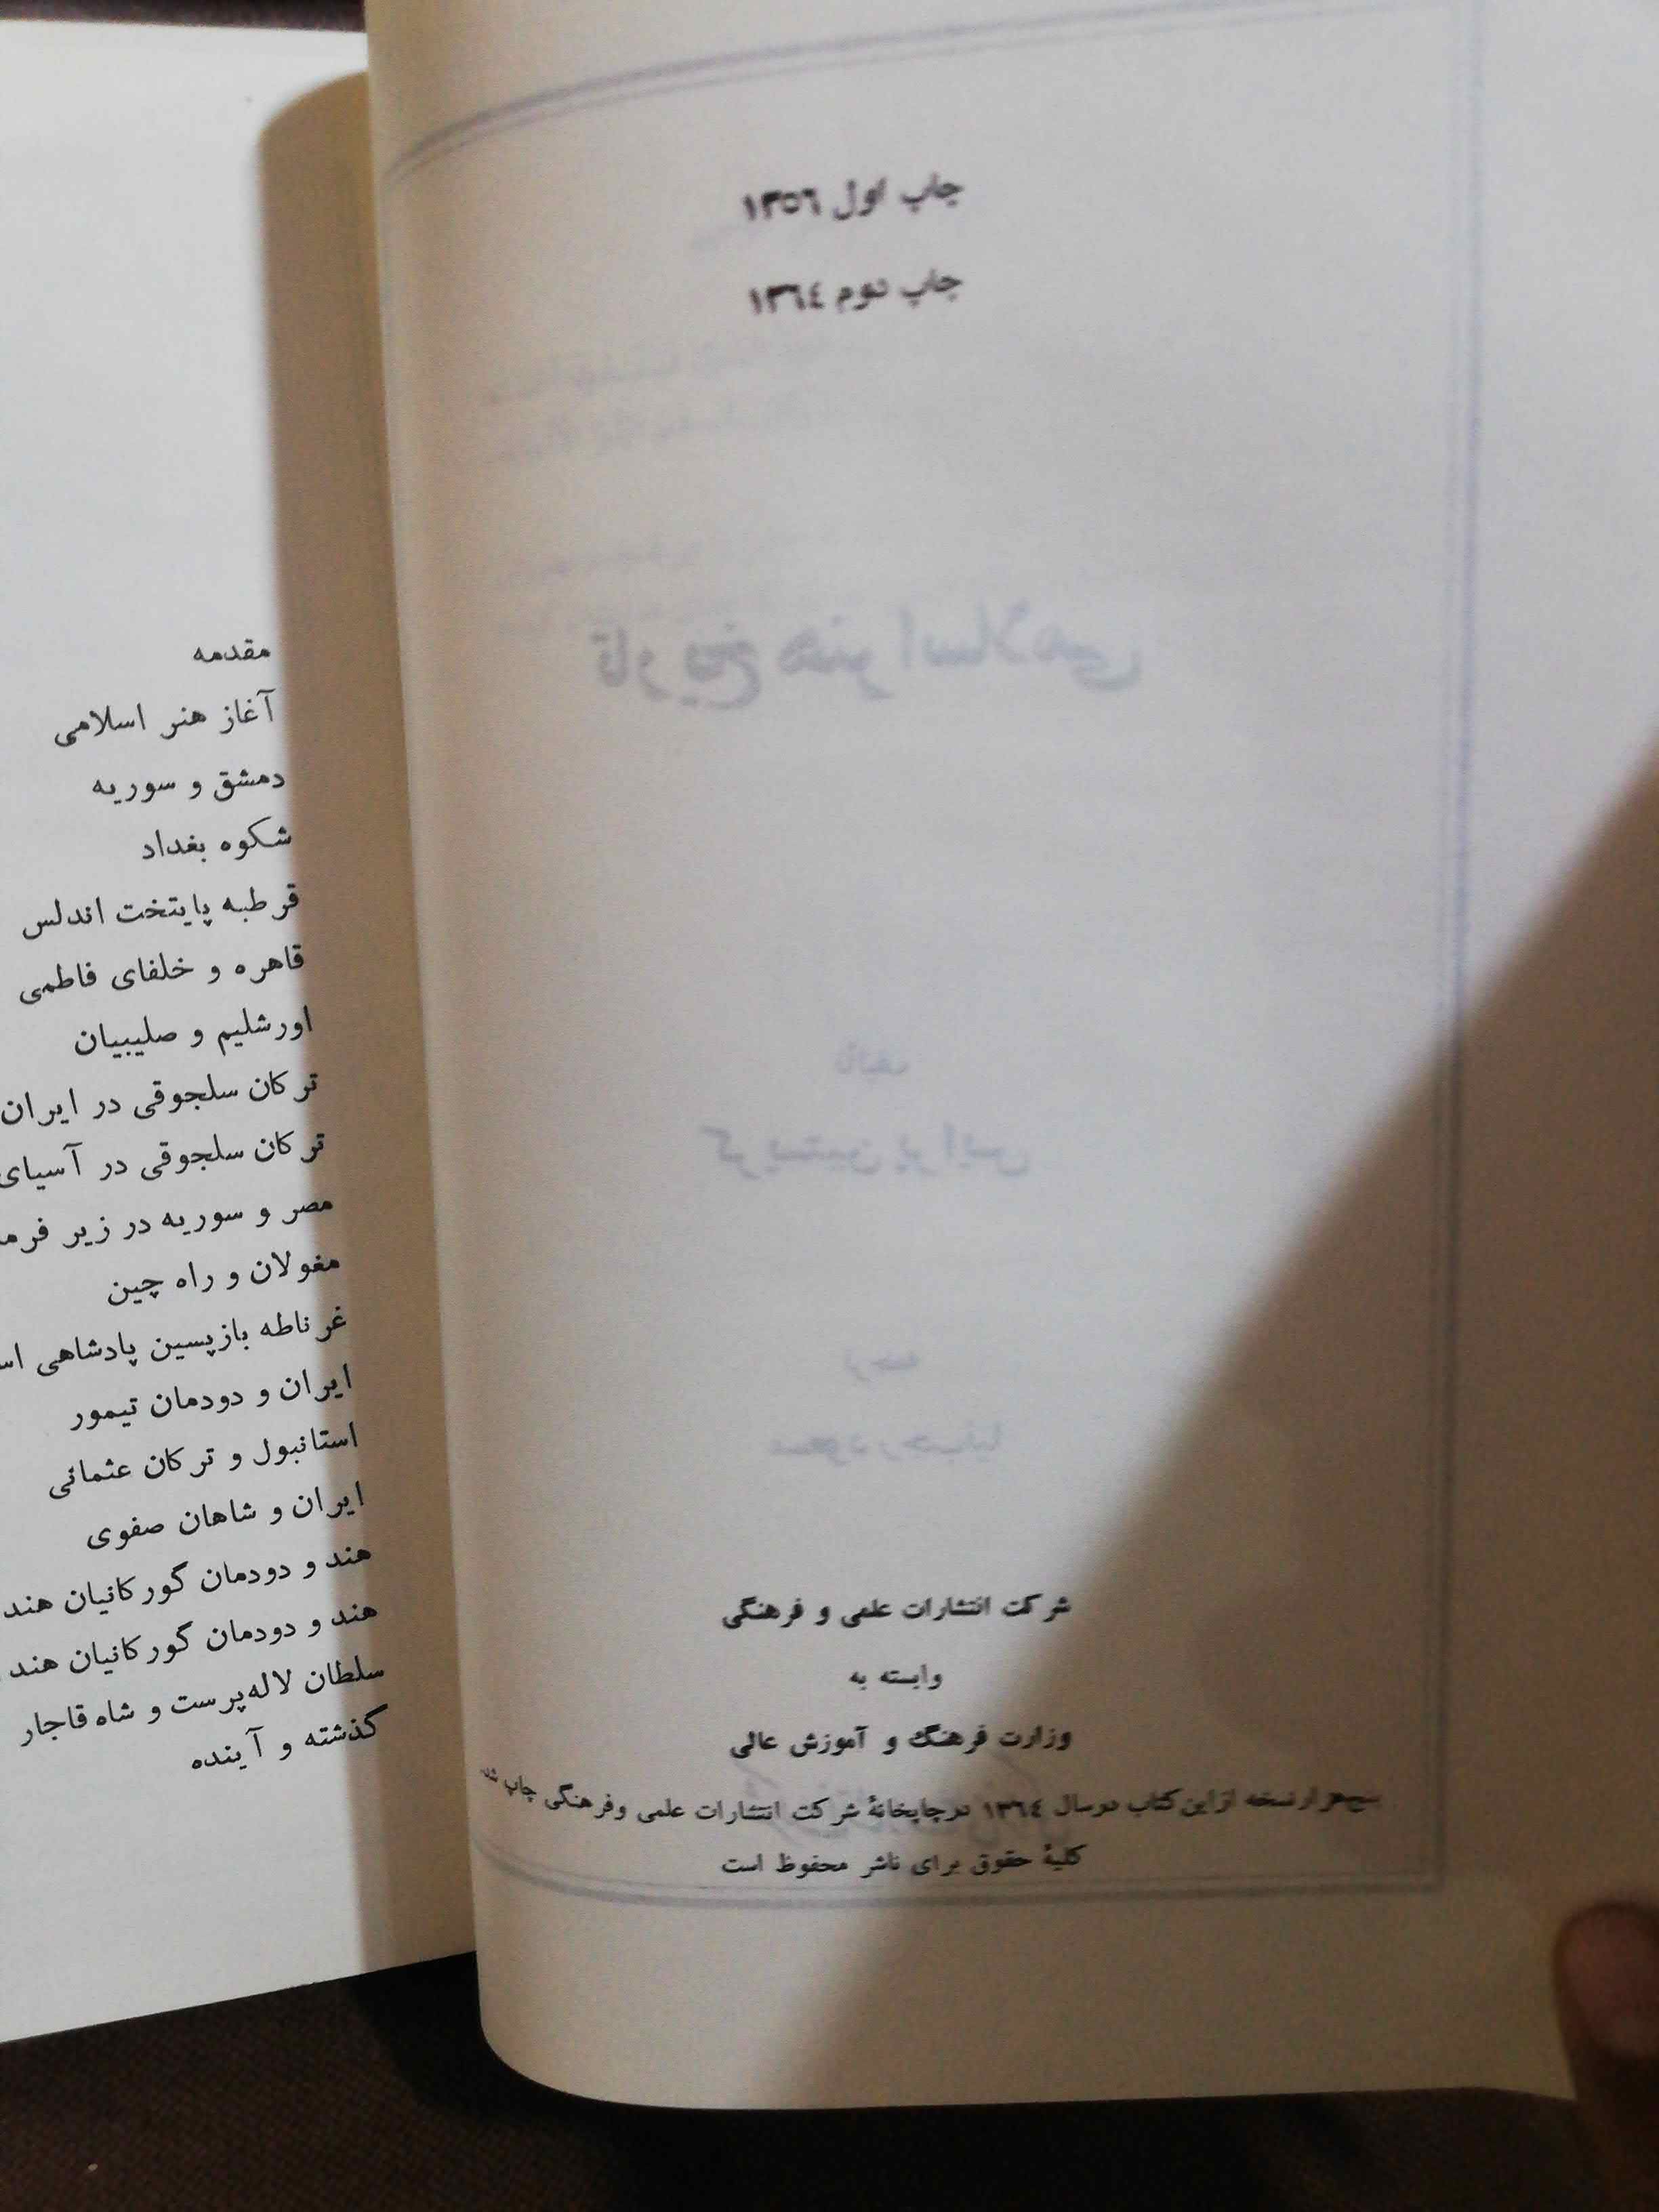 چاپ اول ۱۳۵۶
چاپ دوم ۱۳۶۴
تاریخ هنر اسلامی
تألیف
کریستین پرایس
ترجمه
مسعود رجب‌نیا
شرکت انتشارات علمی و فرهنگی
وابسته به
وزارت فرهنگ و آموزش عالی
نسخه از این کتاب در سال ۱۳۶۴ در چاپخانهٔ شرکت انتشارات علمی و فرهنگی چاپ شد
کلیهٔ حقوق برای ناشر محفوظ است
مقدمه
آغاز هنر اسلامی
دمشق و سوریه
شکوه بغداد
قرطبه پایتخت اندلس
قاهره و خلفای فاطمی
اورشلیم و صلیبیان
ترکان سلجوقی در ایران
ترکان سلجوقی در آسیای
مصر و سوریه در زیر
مغولان و راه چین
غرناطه بازپسین پادشاهی
ایران و دودمان تیمور
استانبول و ترکان عثمانی
ایران و شاهان صفوی
هند و دودمان گورکانیان هند
هند و دودمان گورکانیان هند
سلطان لاله‌پرست و شاه قاجار
گذشته و آینده